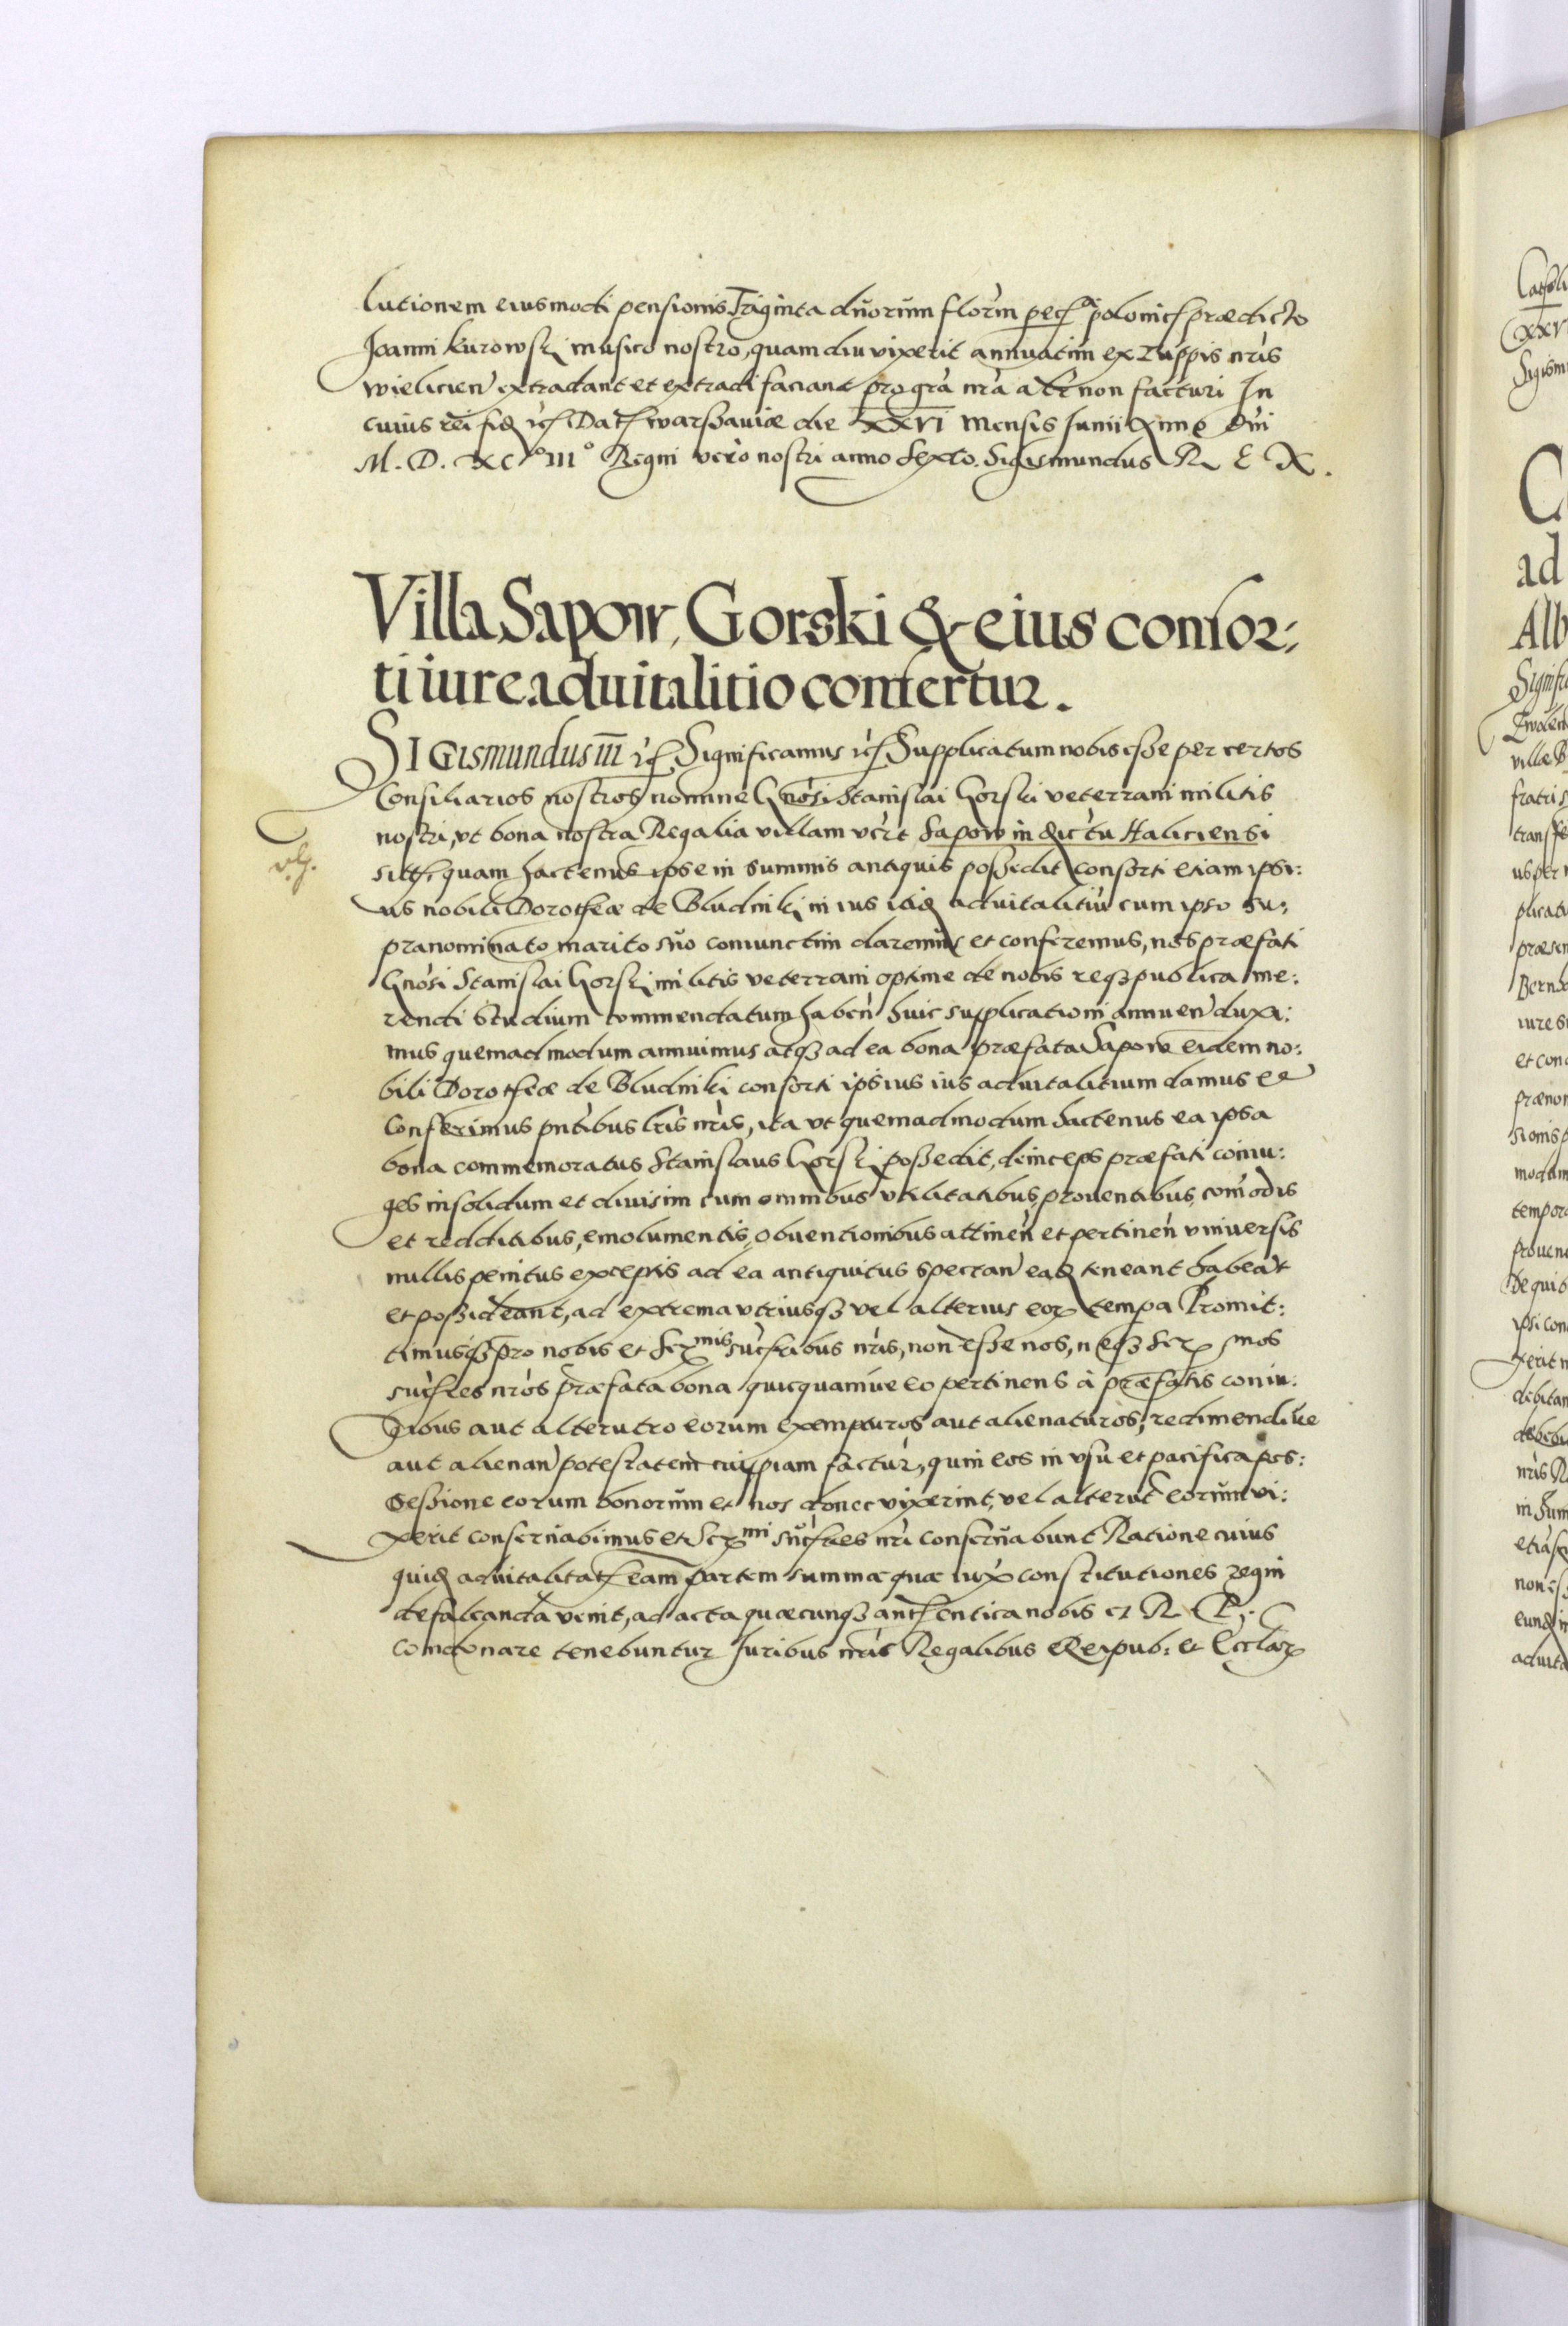 lutionem eiusmodi pensionis Triginta duorum florm pecq polonicq prædicto
Joanni kurowski musico nostro, quamdiu vixerit annuatim ex Zuppis nris
wielicien extradant et extradi faciant pro gra nra altr non facturi In
cuius rei fid rc Datq warssaviæ die XXVI mensis Junii Anno Dni
M. D. XC° III° Regni vero nostri anno sexto. Sigismundus R E X.
Villa Sapow, Gorski & eius consor:
ti iure aduitalitio confertur.
SIGismundus III rc Significamus rc Supplicatum nobis esse per certos
Consiliarios nostros nomine Gnosi Stanislai Gorski veterrani militis
nostri, vt bona nostra Regalia villam vcre Sapow in dictu Haliciensi
sitt, quam hactenus ipse in summis antiquis possedit consorti etiam ipsi:
us nobili Dorotheæ de Bludniki in ius itid aduitalitiu cum ipso su:
pranominato marito suo coniunctim daremus et conferemus, nos præfati
Gnosi Stanislai Gorski militis veterrani optime de nobis reqz publica me:
rendi studium commendatum haben huic supplicationi annuen duxi:
mus quemadmodum annuimus atqz ad ea bona præfata Sapow eidem no:
bili Dorotheæ de Bludniki consorti ipsius ius aduitalitium damus et
Conferimus pntibus lris nris, ita vt quemadmodum hactenus ea ipsa
bona commemoratus Stanislaus Gorski possedit, deinceps præfati coniu:
ges insolidum et diuisim cum omnibus vtilitatibus, prouentibus, comodis
et redditibus, emolumentis, obuentionibus attinen et pertinen vniuersis
nullis penitus exceptis ad ea antiquitus spectan ead teneant habeat
et possideant, ad extrema vtriusqz vel alterius eor tempa Promit:
timusqz pro nobis et Ser mis sucribus nris, non esse nos, neqz Ser mos
sucres nros præfata bona quicquamue eo pertinens à præfatis coniu:
gibus aut alterutro eorum exempturos aut alienaturos, redimendi ue
aut alienan potestatem cuipiam factur, quin eos in vsu et pacifica pos:
sessione eorum bonorum et nos donec vixerint, vel alterut eorum vi:
xerit conseruabimus et Ser mi sucres nri conseruabunt Ratione cuius
quid aduitalitatq eam partem summæ quæ iux constitutiones regni
defalcanda venit, ad acta quæcunqz authentica nobis et R P.
condonare tenebuntur Juribus nris Regalibus Reipub: et Ecclar